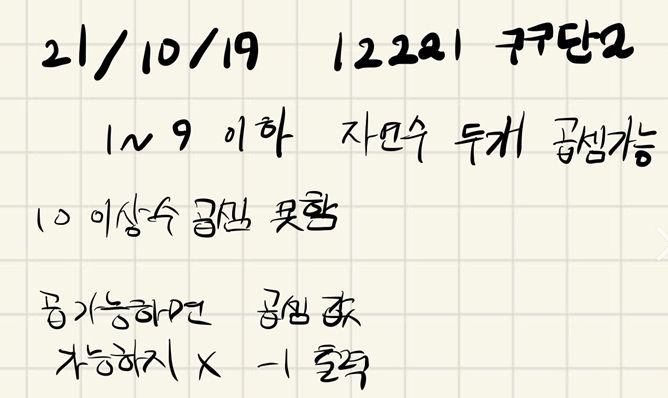 21/10/19 12221 구구단2
1~9 이하 자연수 두개 곱셈가능
10 이상수 곱셈 못함
곱가능하면 곱셈 값
가능하지 X -1 출력